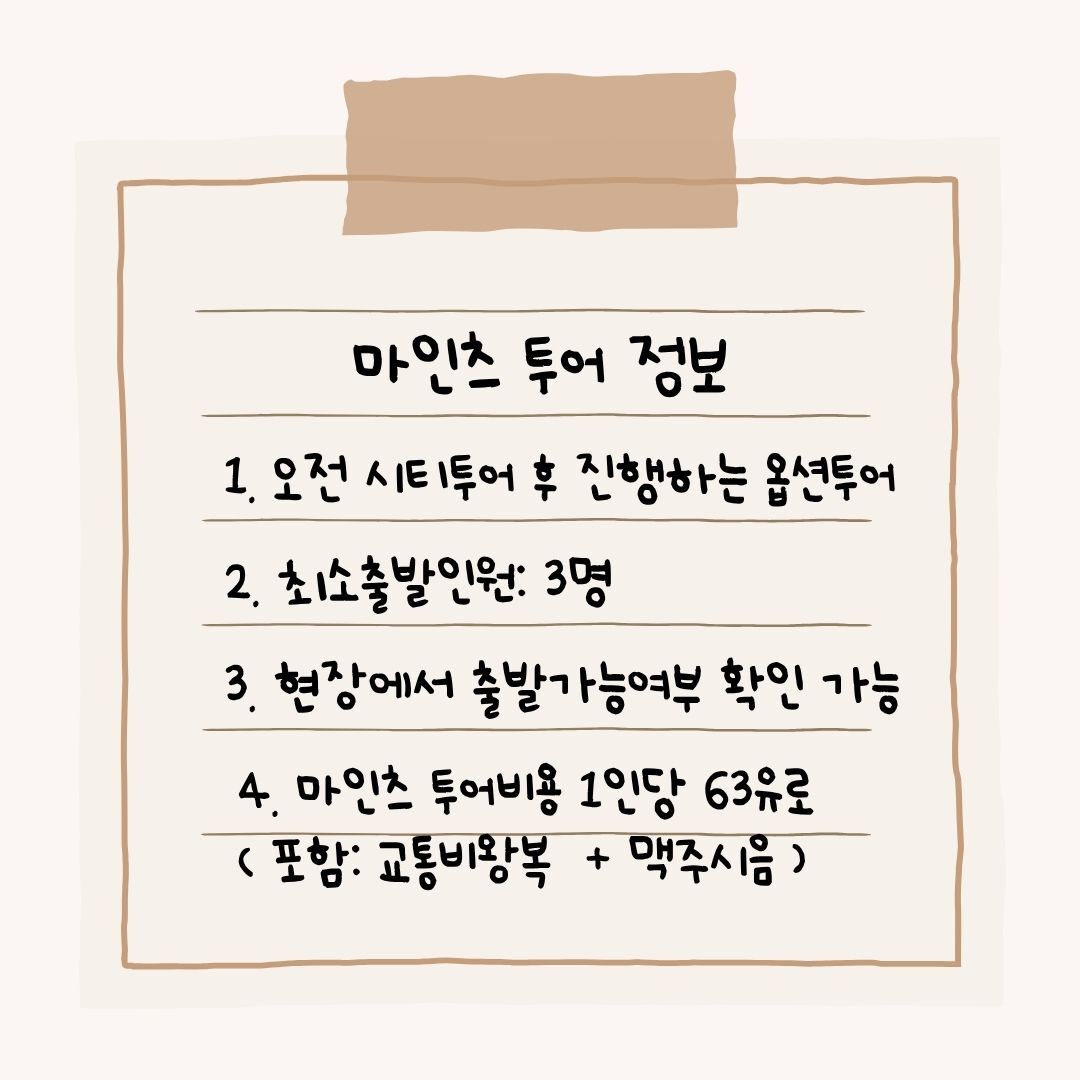 마인츠 투어 정보
1. 오전 시티투어 후 진행하는 옵션투어
2. 최소출발인원: 3명
3. 현장에서 출발가능여부 확인 가능
4. 마인츠 투어비용 1인당 63유로
( 포함: 교통비왕복 + 맥주시음 )